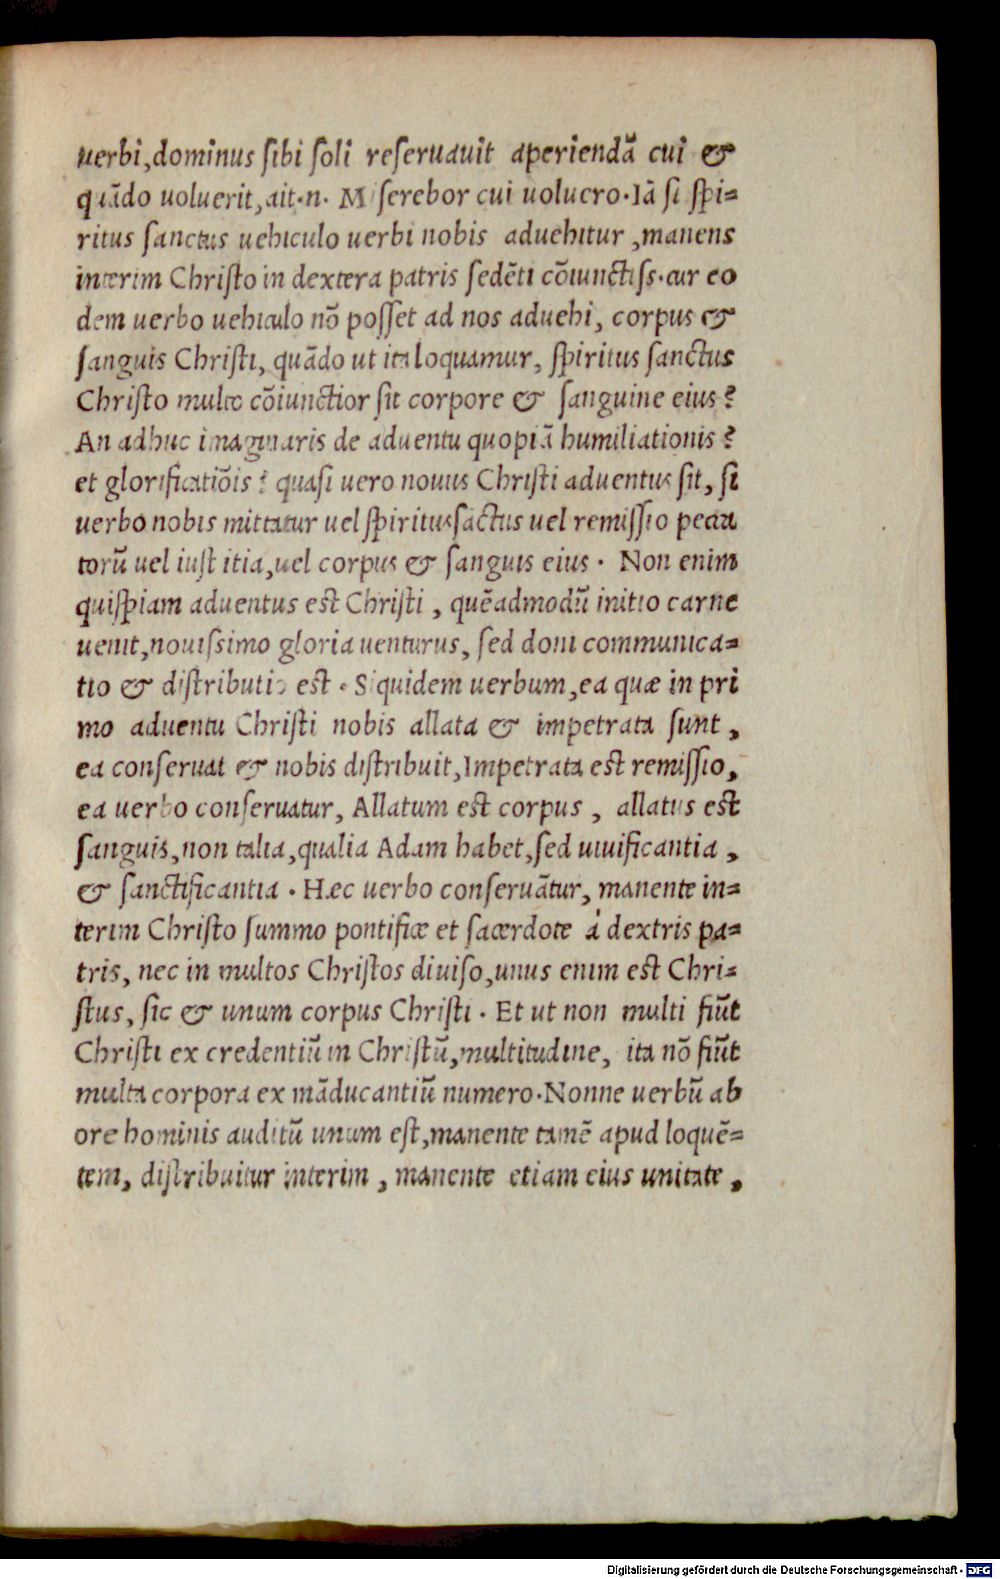 uerbi,dominus ſibi ſoli reſeruauit aperiendā cui &
quādo uoluerit,ait.n. Miſerebor cui uoluero.Iā ſi ſpi=
ritus ſanctus uehiculo uerbi nobis aduehitur ,manens
interim Chriſto in dextera patris ſedēti cōiunctiſs.cur eo
dem uerbo uehiculo nō poſſet ad nos aduehi, corpus &
ſanguis Chriſti, quādo ut ita loquamur, ſpiritus ſanctus
Chriſto multo cōiunctior ſit corpore & ſanguine eius?
An adhuc imaginaris de aduentu quopiā humiliationis?
et glorificatiōis? quaſi uero nouus Chriſti aduentus ſit, ſi
uerbo nobis mittatur uel ſpiritusſāctus uel remiſſio pecca
torū uel iuſtitia,uel corpus & ſanguis eius . Non enim
quiſpiam aduentus eſt Chriſti , quēadmodū initio carne
uenit,nouiſsimo gloria uenturus, ſed doni communica=
tio & diſtributio eſt . Siquidem uerbum,ea quæ in pri
mo aduentu Chriſti nobis allata & impetrata ſunt ,
ea conſeruat & nobis diſtribuit,Impetrata eſt remiſſio,
ea uerbo conſeruatur, Allatum eſt corpus , allatus eſt
ſanguis,non talia,qualia Adam habet,ſed uiuificantia ,
& ſanctificantia . Hæc uerbo conſeruātur, manente in=
terim Chriſto ſummo pontifice et ſacerdote à dextris pa=
tris, nec in multos Chriſtos diuiſo,unus enim eſt Chri=
ſtus, ſic & unum corpus Chriſti . Et ut non multi fiūt
Chriſti ex credentiū in Chriſtū,multitudine, ita nō fiūt
multa corpora ex māducantiū numero.Nonne uerbū ab
ore hominis auditū unum eſt,manente tamē apud loquē=
tem, diſtribuitur interim , manente etiam eius unitate ,
Digitalisierung gefördert durch die Deutsche Forschungsgemeinschaft - DFG